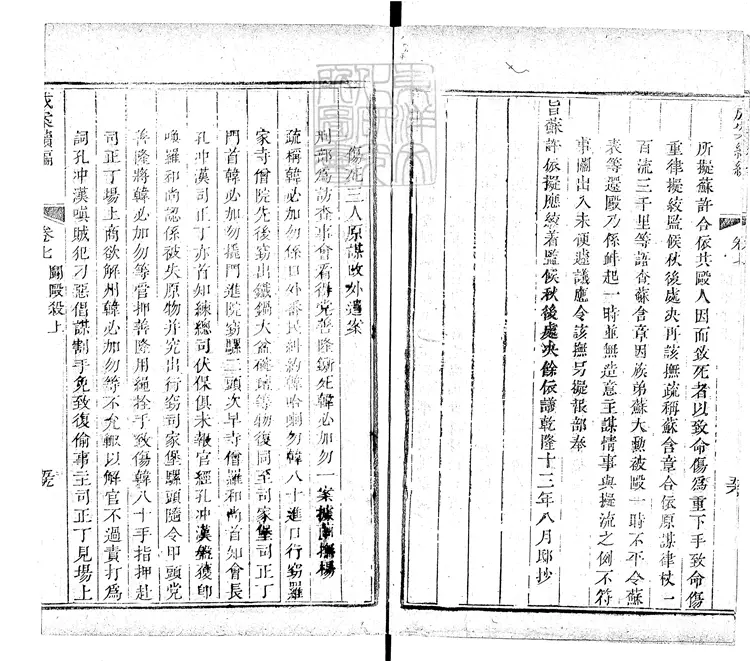 所擬蘇許合依共毆人因而致死者以致命傷爲重下手致命傷
重律擬絞監候秋後處决再該撫疏稱蘇含章合依原謀律杖一
百流三千里等語查蘇含章因族弟蘇大勳被毆一時不平令蘇
表等還毆乃係衅起一時並無造意主謀情事與擬流之例不符
事關出入未便遽議應令該撫另擬報部奉
旨蘇許依擬應絞着監候秋後處决餘依議乾隆十三年八月邸抄
成案續編
卷七
鬬毆殺上
傷死三人原謀改外遣案
刑部爲訪查事會看得党善隆斲死韓必加勿一案據撫楊
疏稱韓必加勿係口外番民糾約韓哈喇勿韓八十進口行竊羅
家寺僧院先後竊出鐵鍋大盆等物復同至司家堡司正丁
門首韓必加勿撬門進院竊騾二頭次早寺僧羅和尚首知會長
孔冲漢司正丁亦首知練總司伏保俱未報官經孔冲漢緝獲卽
喚羅和尚認係被失原物并究出行竊司家堡騾頭隨令甲頭党
善隆將韓必加勿等看押善隆用繩拴手致傷韓八十手指押赴
司正丁場上商欲解州韓必加勿等不允輒以解官不過責打爲
詞孔冲漢嗔賊犯刁惡倡謀割手免致復偷事主司正丁見場上